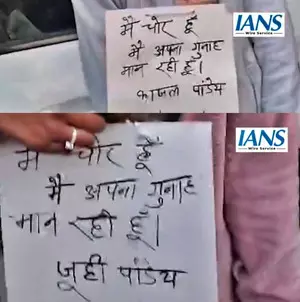 IANS
Wire Service
मै चोर हूँ
मै अपना गुनाह
मान रही हूँ।
काजल पांडेय
IANS
Wire Service
मै चोर हूँ
मै अपना गुनाह
मान रही हूँ।
जूही पांडेय